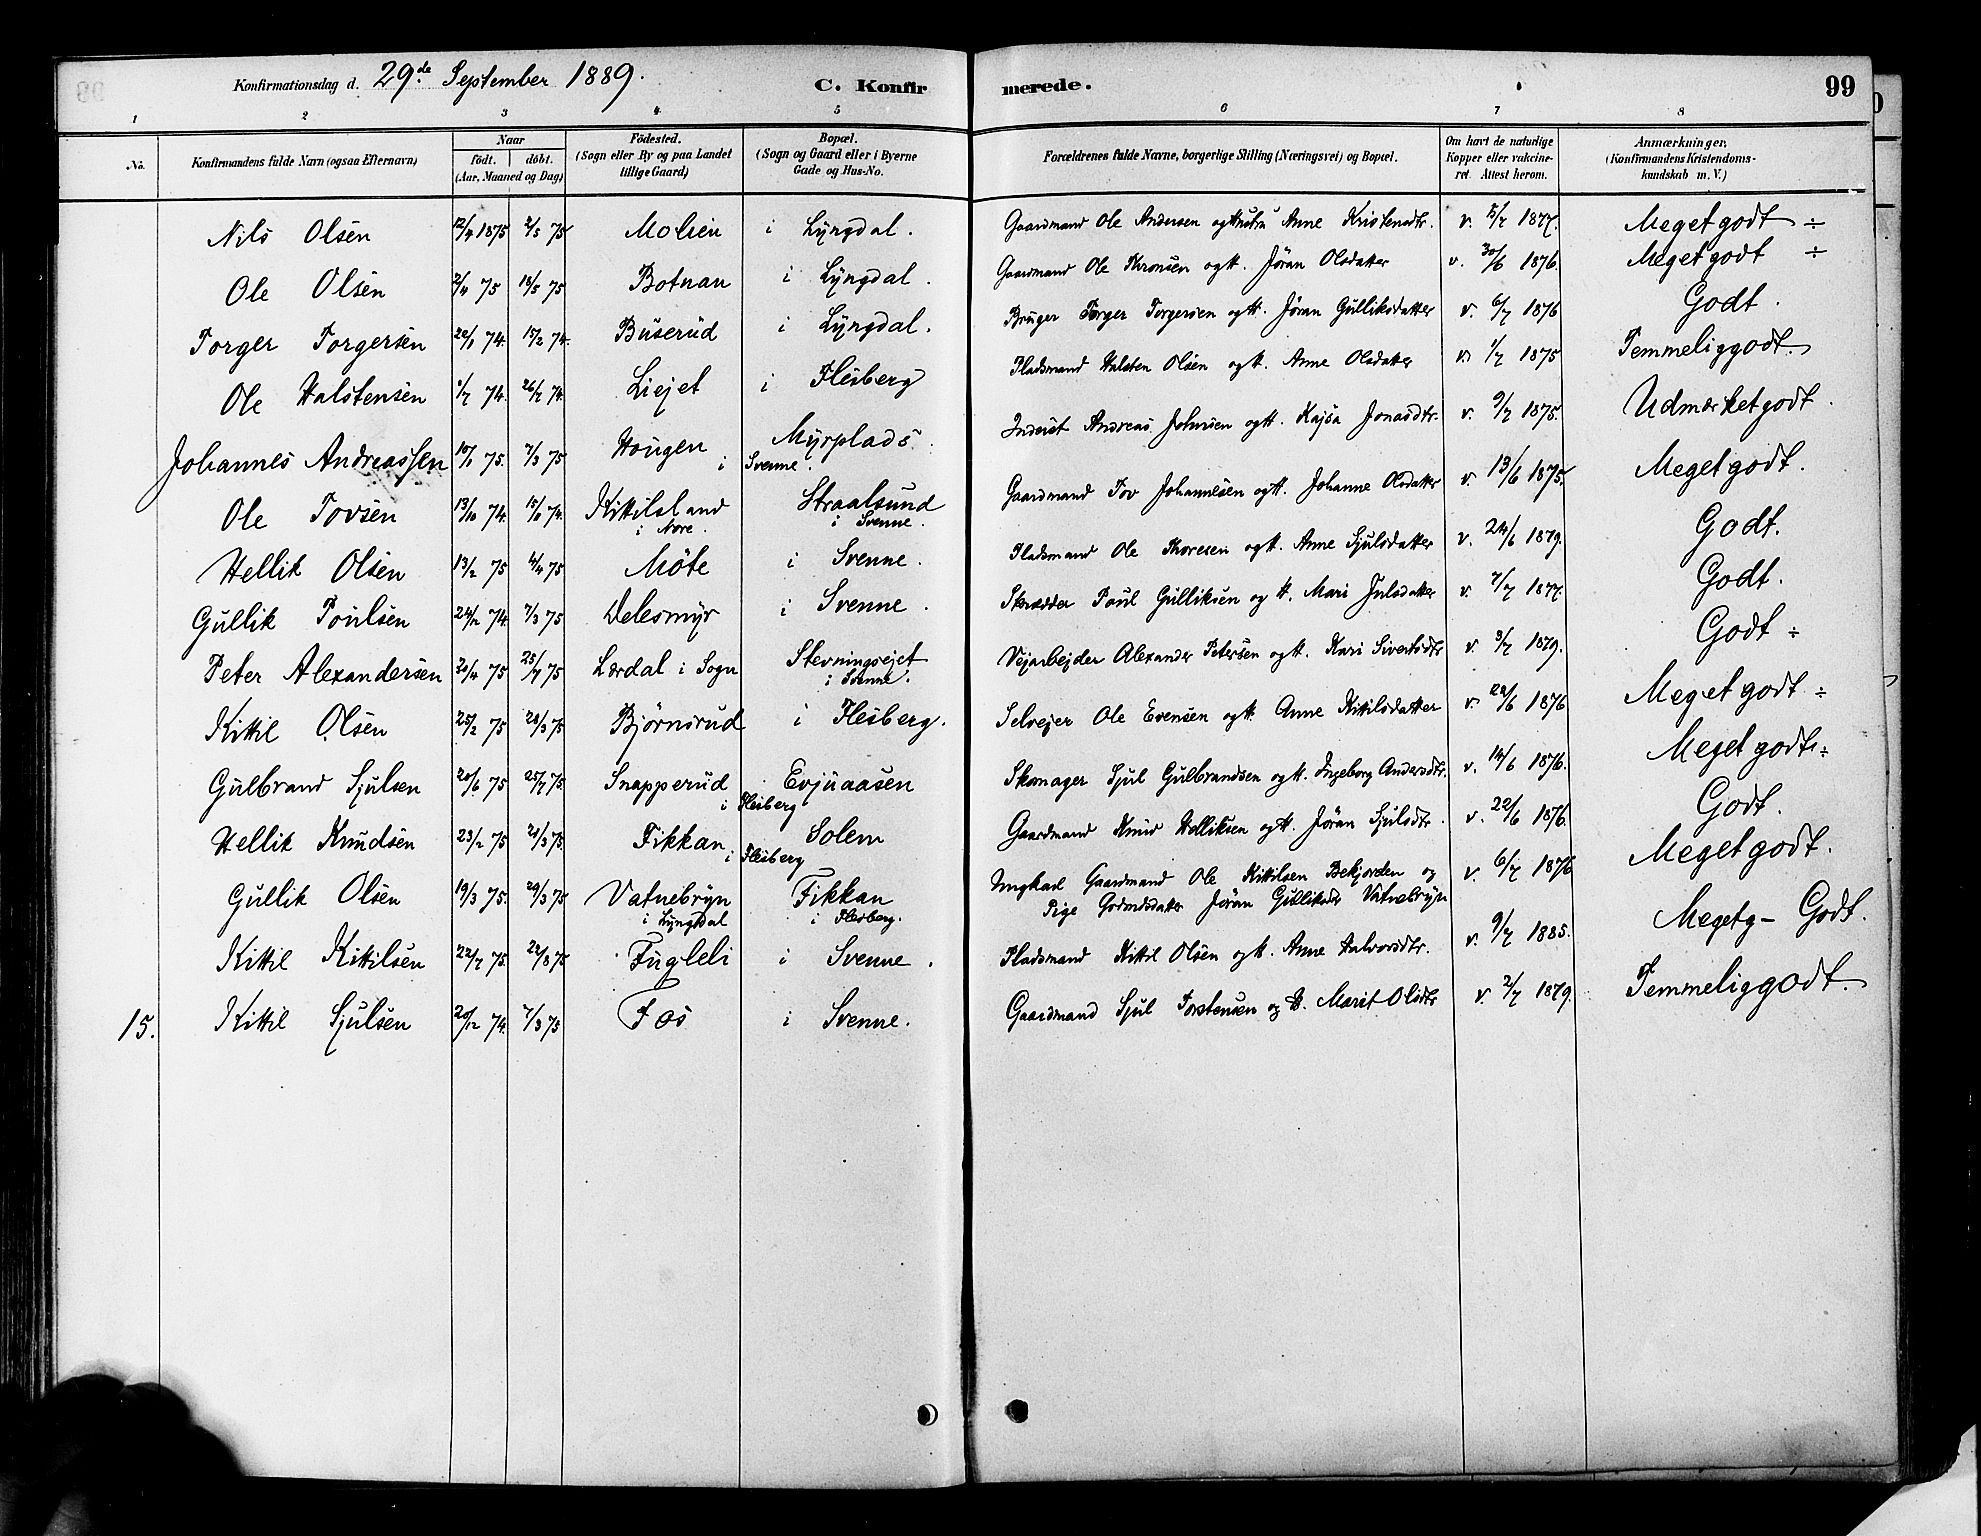 Konfirmationsdag d. 29de September 1889. C. Konfirmerede. 99
1 2 3 4 5 6 7 8
No. Konfirmandens fulde Navn (ogsaa Efternavn) Naar født. døbt. (Aar, Maaned og Dag) Fødested. (Sogn eller By og paa Landet tillige Gaard) Bopæl. (Sogn og Gaard eller i Byerne Gade og Hus-No. Forældrenes fulde Navne, borgerlige Stilling (Næringsvei) og Bopæl. Om havt de naturlige Kopper eller vakcineret. Attest herom. Anmærkninger. (Konfirmandens Kristendomskundskab m. V.)
Nils Olsen 12/4 1875 2/5 75 Molien i Lyngdal. Gaardmand Ole Andersen og Hustru Anne Kristensdtr. v. 5/7 1877. Meget godt ÷
Ole Olsen 2/4 75 18/5 75 Botnan i Lyngdal. Gaardmand Ole og H. Jöran Olsdatter v. 30/6 1876. Meget godt ÷
Torger Torgersen 22/1 74. 15/2 74. Buserud i Lyngdal. Bruger Torger Torgersen og H. Jöran Gulliksdatter v. 6/7 1876 Godt.
Ole Halstensen 1/7 74. 26/7 74. Liejet i Flesberg Pladsmand Halsten Olsen og H. Anne Olsdatter v. 1/7 1875 Temmelig godt.
Johannes Andreassen 10/1 75. 7/3 75 Hougen i Svenne. Myrplads Inderst Andreas Johnsen og H. Kajsa Jonasdtr. v. 9/7 1875. Udmærket godt.
Ole Tovsen 13/10 74. 15/11 74. Kittilsland i Nore. Straalsund i Svenne. Gaardmand Tov Johannesen og H. Johanne Olsdatter v. 13/6 1875. Meget godt.
Hellik Olsen 13/2 75 11/4 75 Möte i Svenne. Pladsmand Ole Thoresen og H. Anne Sjulsdatter v. 24/6 1879. Godt.
Gullik Poulsen 24/12 74. 7/3 75 Delesmyr i Svenne. Skrædder Poul Gulliksen og H. Mari Julsdatter v. 7/7 1877. Godt.
Peter Alexandersen 30/4 75 25/7 75 Lærdal i Sogn Stevningsejet i Svenne. Vejarbejder Alexander Petersen og H. Kari Sivertsdtr v. 3/7 1879. Godt ÷
Kittil Olsen 25/2 75 28/3 75 Bjørnsrud i Flesberg. Selvejer Ole Evensen og H. Anne Kittilsdatter v. 22/6 1876 Meget godt ÷
Gulbrand Sjulsen 20/6 75 25/7 75. Snapperud i Flesberg Evjuaasen Skomager Sjul Gulbrandsen og H. Ingeborg Andersdtr. v. 14/6 1876. Meget godt ÷
Hellik Knudsen 23/2 75 21/3 75. Fikkan i Flesberg Solem Gaardmand Knud Helliksen og H. Jöran Sjulsdtr. v. 22/6 1876. Godt.
Gullik Olsen 19/3 75. 29/3 75 Vatnebryn i Lyngdal Fikkan i Flesberg. Ungkarl Gaardmand Ole Kittilsen Bekjorden og v. 6/7 1876 Meget godt.
Pige Jöran Vatnebryn
Kittil Kittilsen 22/7 75. 22/8 75 Fugleli i Svenne. Pladsmand Kittil Olsen og H. Anne Halvorsdtr. v. 9/7 1885. Megetg– Godt.
15. Kittil Sjulsen 20/12 74. 7/3 75 Fos i Svenne. Gaardmand Sjul Torstensen og H. Marit Olsdtr v. 2/7 1879. Temmelig godt.